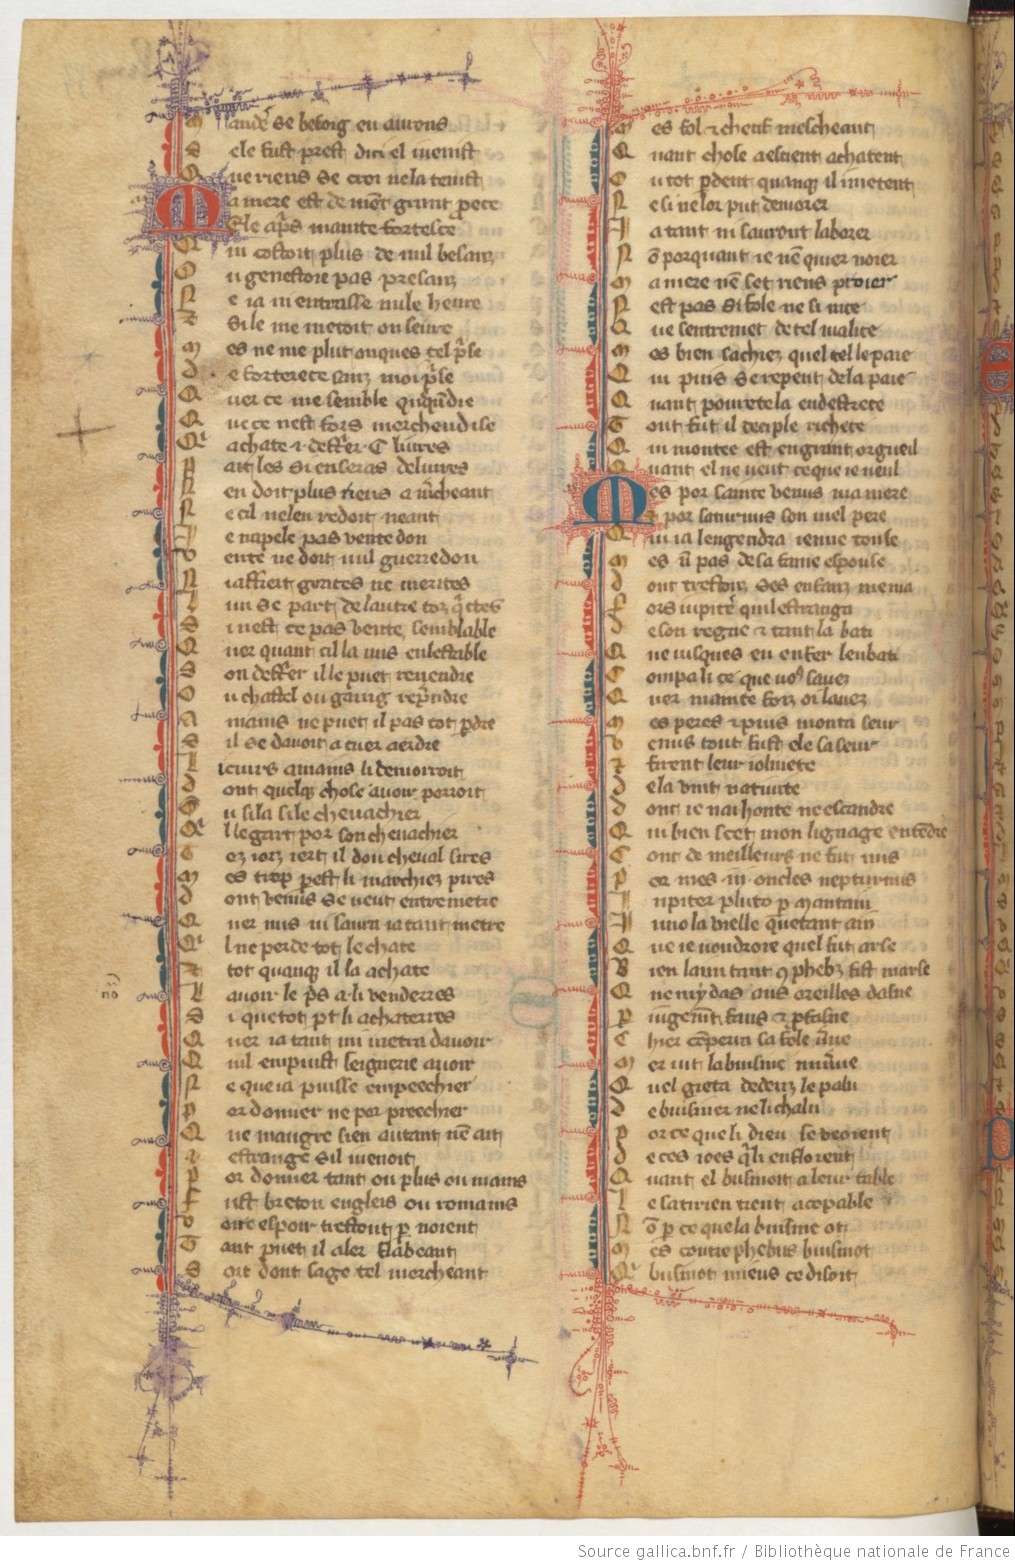 M ande se besoig en aurons
S ele fust prest dici el venist
Q ue riens se croi ne la tenist
M a mere est de mlt grant proece
Ele aps mainte forteresce
Q ui costoit plus de mil besanz
O u ge nestoie pas presanz
N e ia ni entrasse nule heure
E si le me metoit on seure
M es ne me plut onques tel prise
D e forterece sanz moi prise
Q uer ce me semble
Q ue ce nest fors merchendise
Q i achate .i. destrier .C. livres
P ait les si en seras delivres
N en doit plus riens a mcheant
N e cil ne len redoit neant
I e napele pas vente don
V ente ne doit nul guerredon
N i affiert graces ne merites
L un se part de lautre toz quites
S i nest ce pas vente semblable
Q uer quant cil la mis en lestable
S on destrier il le puet revendre
O u chastel ou gaaing reprendre
A mains ne puet il pas tot pdre
S il se davoit a cuer aerdre
L i cuirs amains li demorroit
D ont quelq chose avoir porroit
O u sil a si le chevachier
Q i l le gart por son chevachier
T oz iorz iert il dou cheval sires
M es trop pest li marchiez pires
D ont venus se veut entremetre
Q uer nus ni saura ia tant metre
Q i l ne perde tot le chate
E tot quanq il la achate
L avoir le ps a li venderres
S i que tot pt li achaterres
Q uer ia tant ni metra davoir
Q uil em puist seignerie avoir
N e que ia puisse empeechier
P or donner ne por preechier
Q ue maugre sien autant nen ait
I estrange sil venoit
P or donner tant ou plus ou mains
F ust breton engleis ou romains
V oire espoir trestout p noient
T ant puet il aler flabeant
S ont dont sage tel mercheant
M es fol et chetif mescheant
Q uant chose aescient achatent
O u tot pdent quanq il i metent
N e si ne lor puet demorer
I a tant ni sauront laborer
N on porquant ie nen quier noier
M a mere nen set riens proier
N est pas si fole ne si nice
Q ue sentremet de tel malice
M es bien sachiez quel tel le paie
Q ui puis se repent de la paie
Q uant povrete la en destrece
T out fut il deciple richece
Q ui montee est en grant orgueil
Q uant el ne veut ce que ie veul
M es por sainte venus ma mere
E t por saturnus son viel pere
Q ui ia lengendra ienne touse
M es non pas de sa fame espouse
D ont treftouz ses enfanz menia
F ors iupiter qui lestranga
D e son regne et tant la bati
Q ue iusques en enfer lenbati
C ompa li ce que vos savez
Q uer mainte foiz oi lavez
M es peres et puis monta seur
V enus tout fust ele sa seur
E firent leur iolivete
D e la vint nativite
D ont ie nai honte ne escandre
Q ui bien scet mon lignage entendre
C ont de meilleurs ne fut nus
P or mes .iii. oncles neptunus
I upiter pluto
I uno la vielle q antant ain
Q ue ie voudroie quel fut arse
B ien laim tant q phebus fist marse
Q ne mydas aus oreilles dasne
P
C hier
M er vit la buisine
Q uel gieta dedenz le palu
D e buisiner ne li chalu
P or ce que li dieu se veoient
D e ces ioes qli enfloient
Q uant el buisinoit a leur table
L e satirien tient acopable
N on p ce que la buisine ot
M es contre phebus buisinot
Q i buisinot mieus ce disoit
no
Source gallica.bnf.fr / Bibliothèque nationale de France